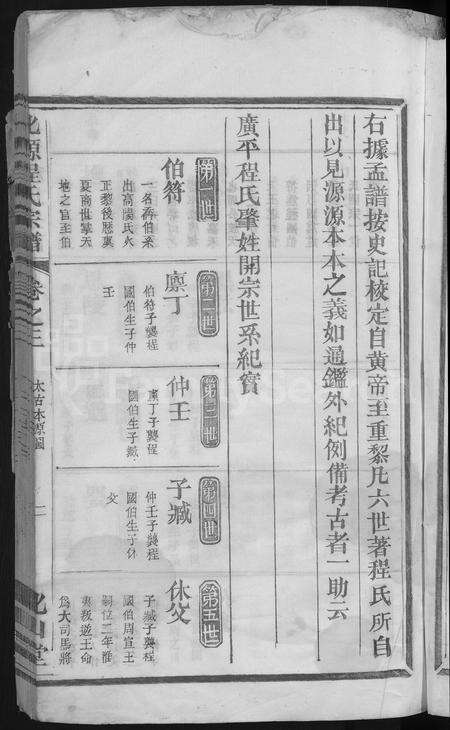 右據孟譜按史記校定自黃帝至重黎凡六世著程氏所自
出以見源源本本之義如通鑑外紀例備考古者一助云
廣平程氏肇姓開宗世系紀實
第一世
伯符
一名喬伯系
出高陽氏火
正黎後歷虞
夏商世掌天
地之官至伯
第二世
廪丁
伯符子襲程
國伯生子仲
壬
第三世
仲壬
廪丁子襲程
國伯生子臧
第四世
子臧
仲壬子襲程
國伯生子休
父
第五世
休父
子臧子襲程
國伯周宣王
嗣位二年淮
夷叛遊王命
為大司馬將
源程氏宗譜
卷之三
太古本原圖
二